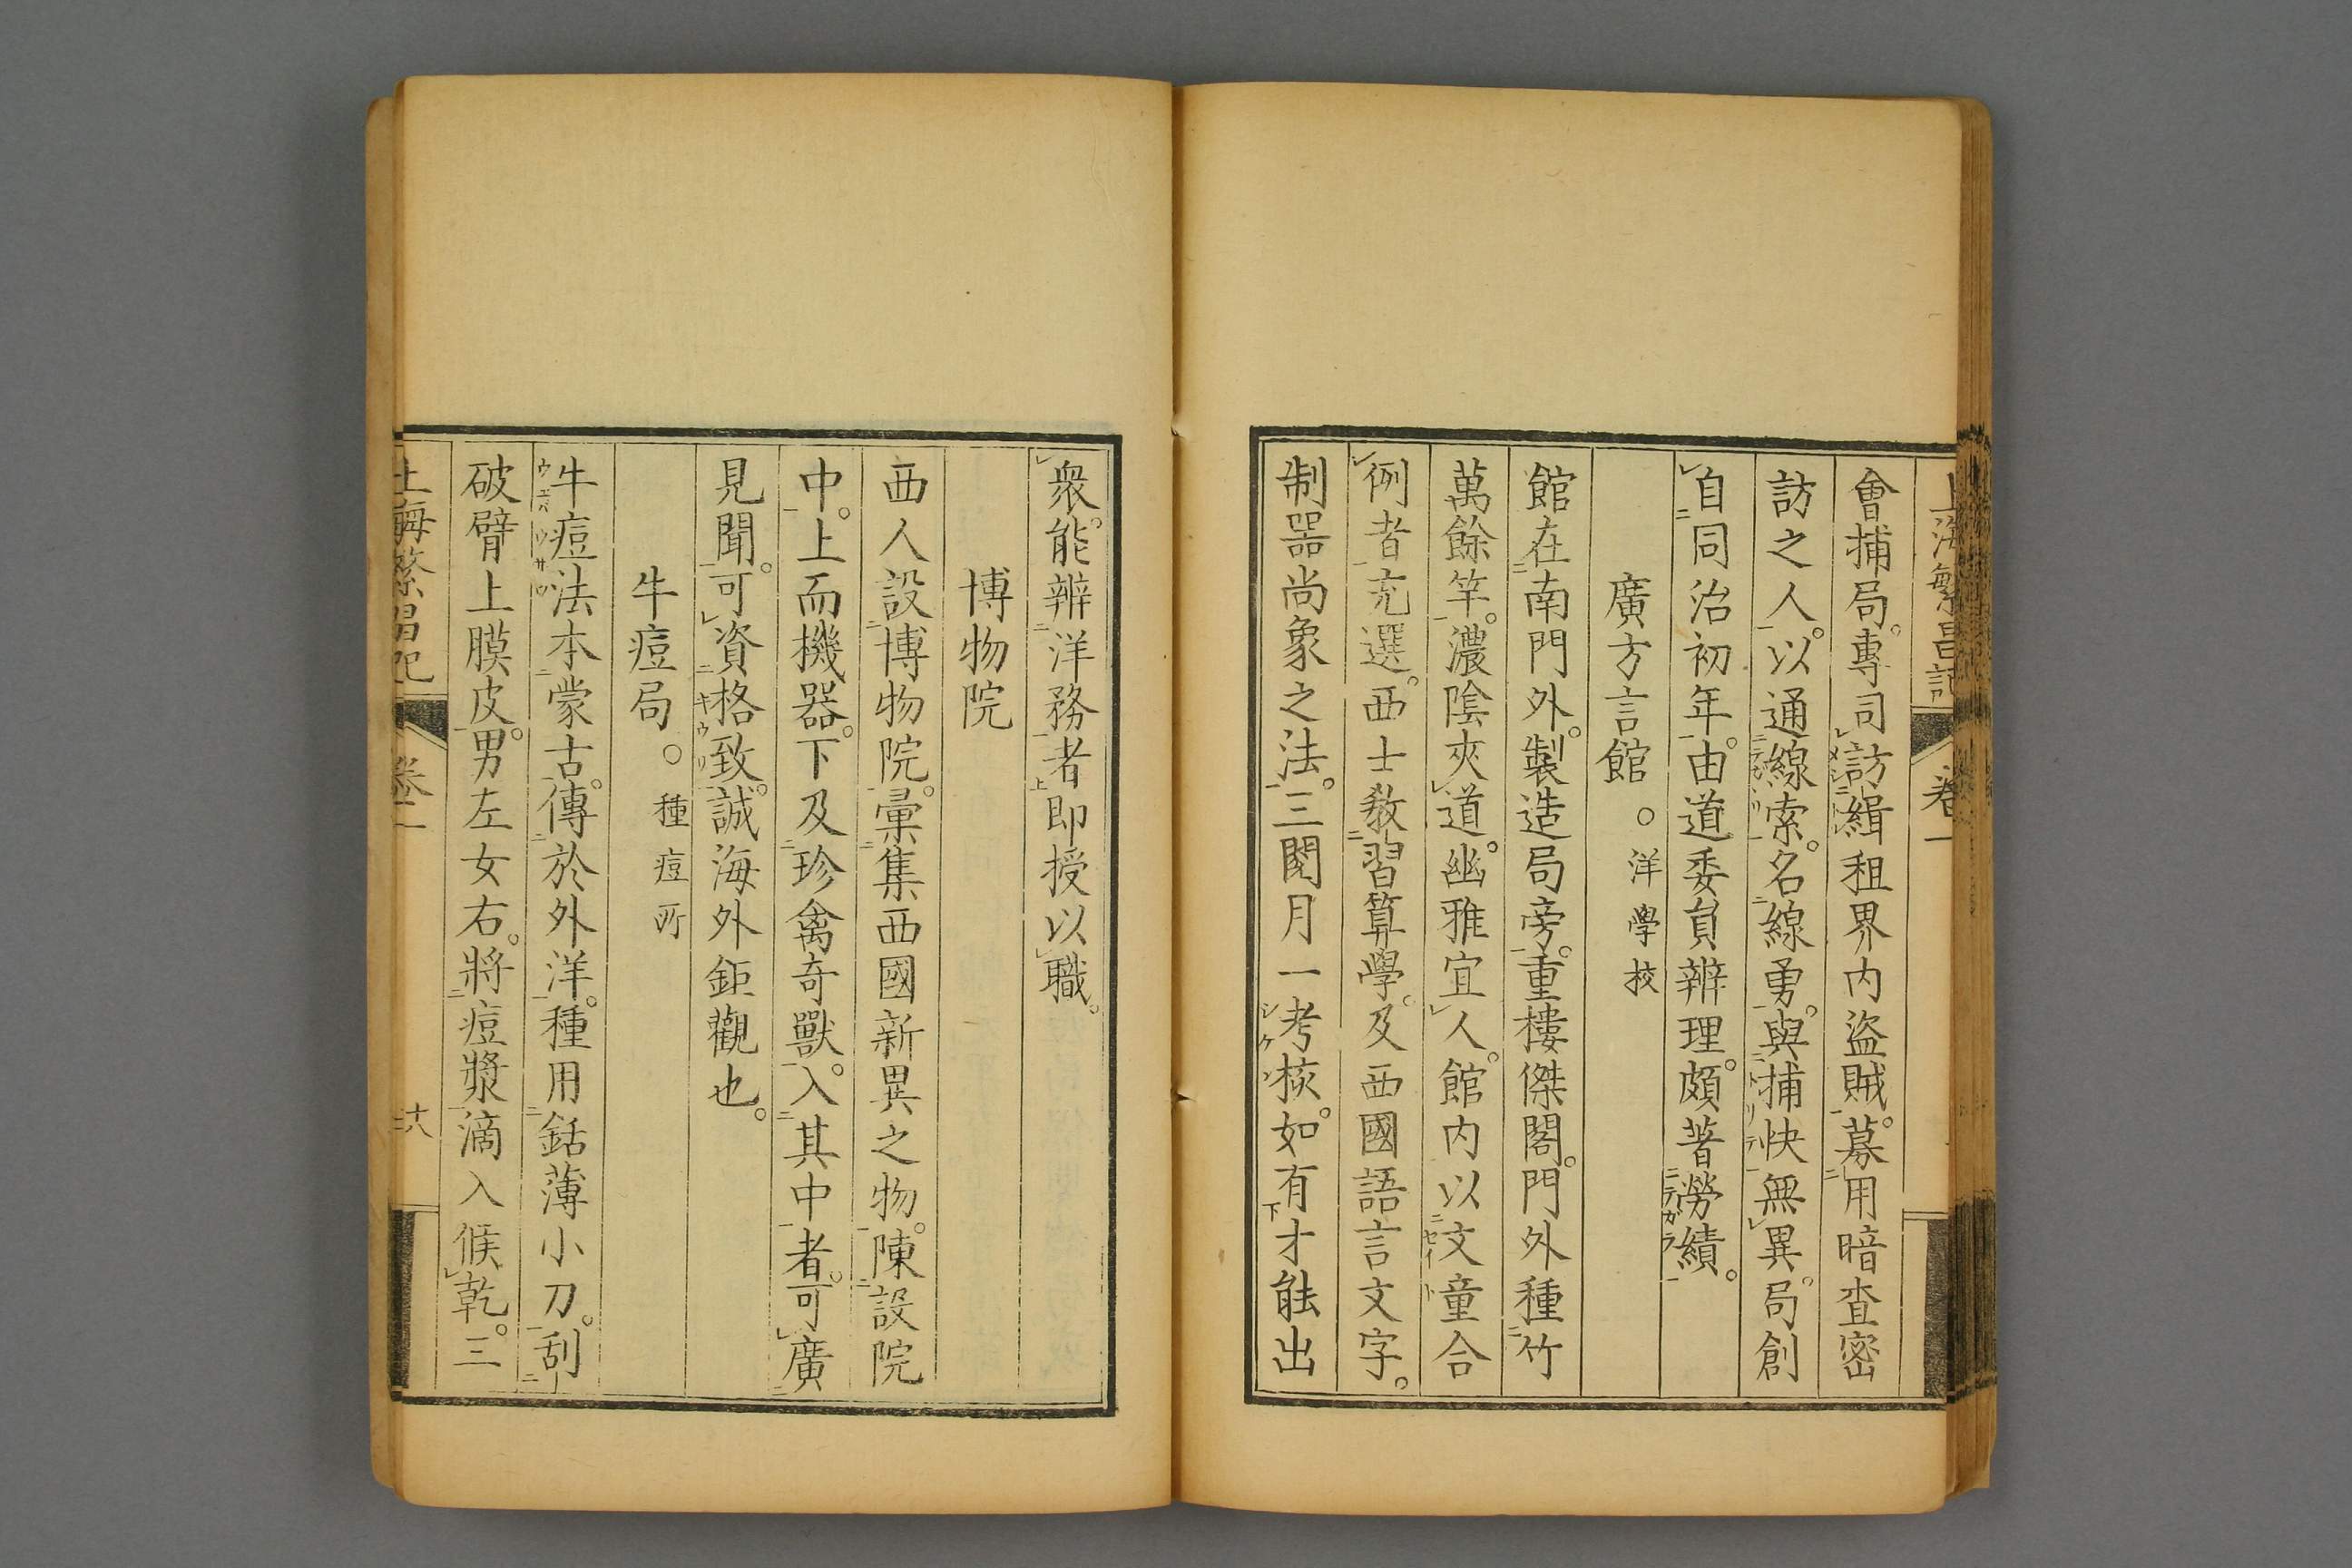 上海繁昌記 卷一
會捕局。專司訪緝租界内盜賊。募用暗查密
訪之人。以通線索。名線勇。與捕快無異。局創
自同治初年。由道委員辨理。頗著勞績。
廣方言館 。洋學校
館在南門外。製造局旁。重樓傑閣。門外種竹
萬餘竿。濃陰夾道。幽雅宜人。館内以文童合
例者充選。西士教習算學。及西國語言文字。
制器尚象之法。三閱月一考核。如有才能出
衆。能辨洋務者即授以職。
博物院
西人設博物院。彙集西國新異之物。陳設院
中。上而機器。下及珍禽奇獸。入其中者。可廣
見聞。可資格致。誠海外鉅觀也。
牛痘局 。種痘所
牛痘法本蒙古。傳於外洋。種用銛薄小刀。刮
破臂上膜皮。男左女右。將痘漿滴入候乾。三
上海繁昌記 卷一 十八